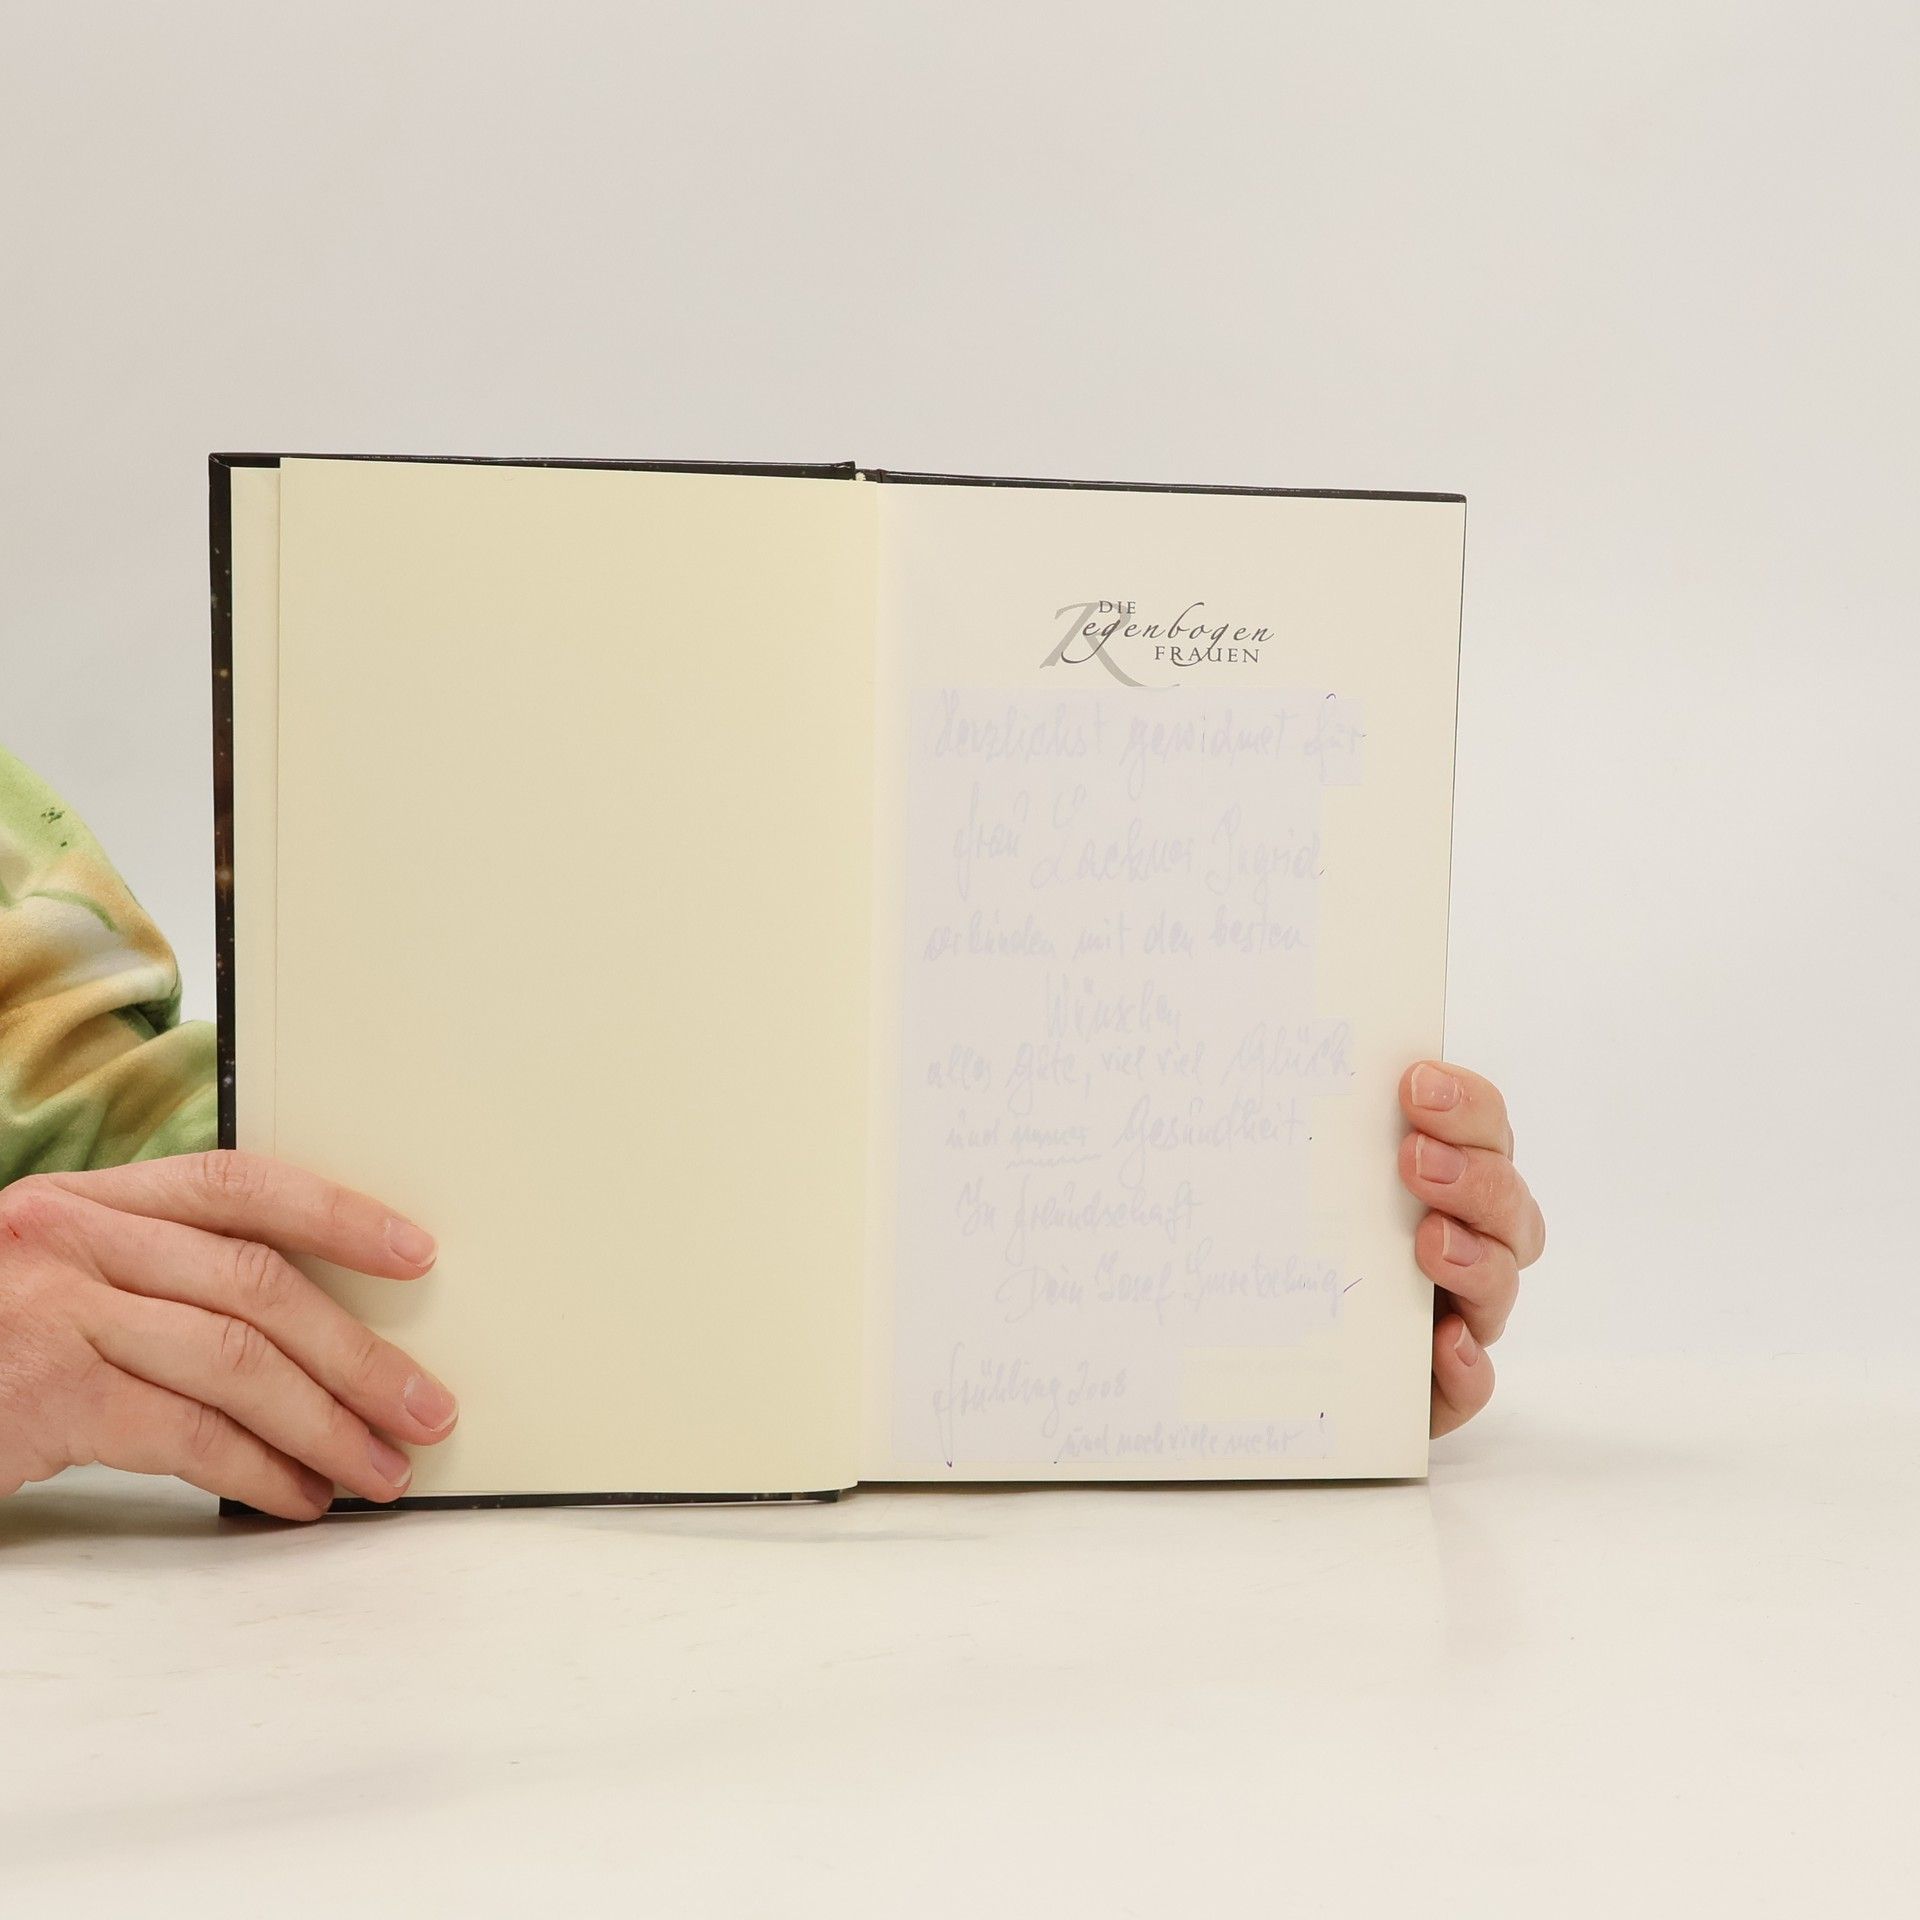 DIE
Regenbogen
FRAUEN
Herzlichst gewidmet für
Frau Lackner Ingrid
verbunden mit den besten
Wünschen
alles Gute, viel viel Glück
und immer Gesundheit.
In Freundschaft
Dein Josef
Frühling 2008
und noch viele mehr!